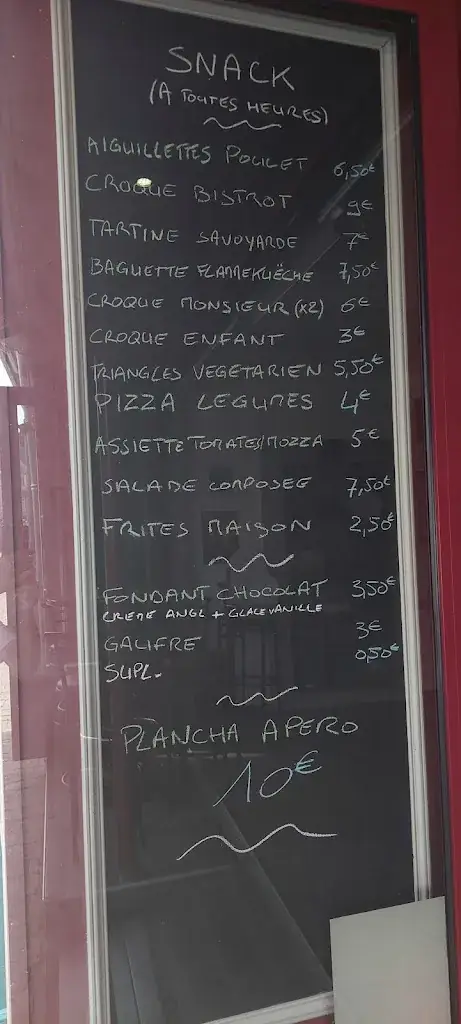 SNACK
(A TOUTES HEURES)
AIGUILLETTES POULET 6,50€
CROQUE BISTROT 9€
TARTINE SAVOYARDE 7€
BAGUETTE FLAMMEKUËCHE 7,50€
CROQUE MONSIEUR (X2) 6€
CROQUE ENFANT 3€
TRIANGLES VEGETARIEN 5,50€
PIZZA LEGUMES 4€
ASSIETTE TOMATES/MOZZA 5€
SALADE COMPOSEE 7,50€
FRITES MAISON 2,50€
FONDANT CHOCOLAT 3,50€
CREME ANGL + GLACE VANILLE
GAUFRE 3€
SUPL. 0,50€
PLANCHA APERO
10€